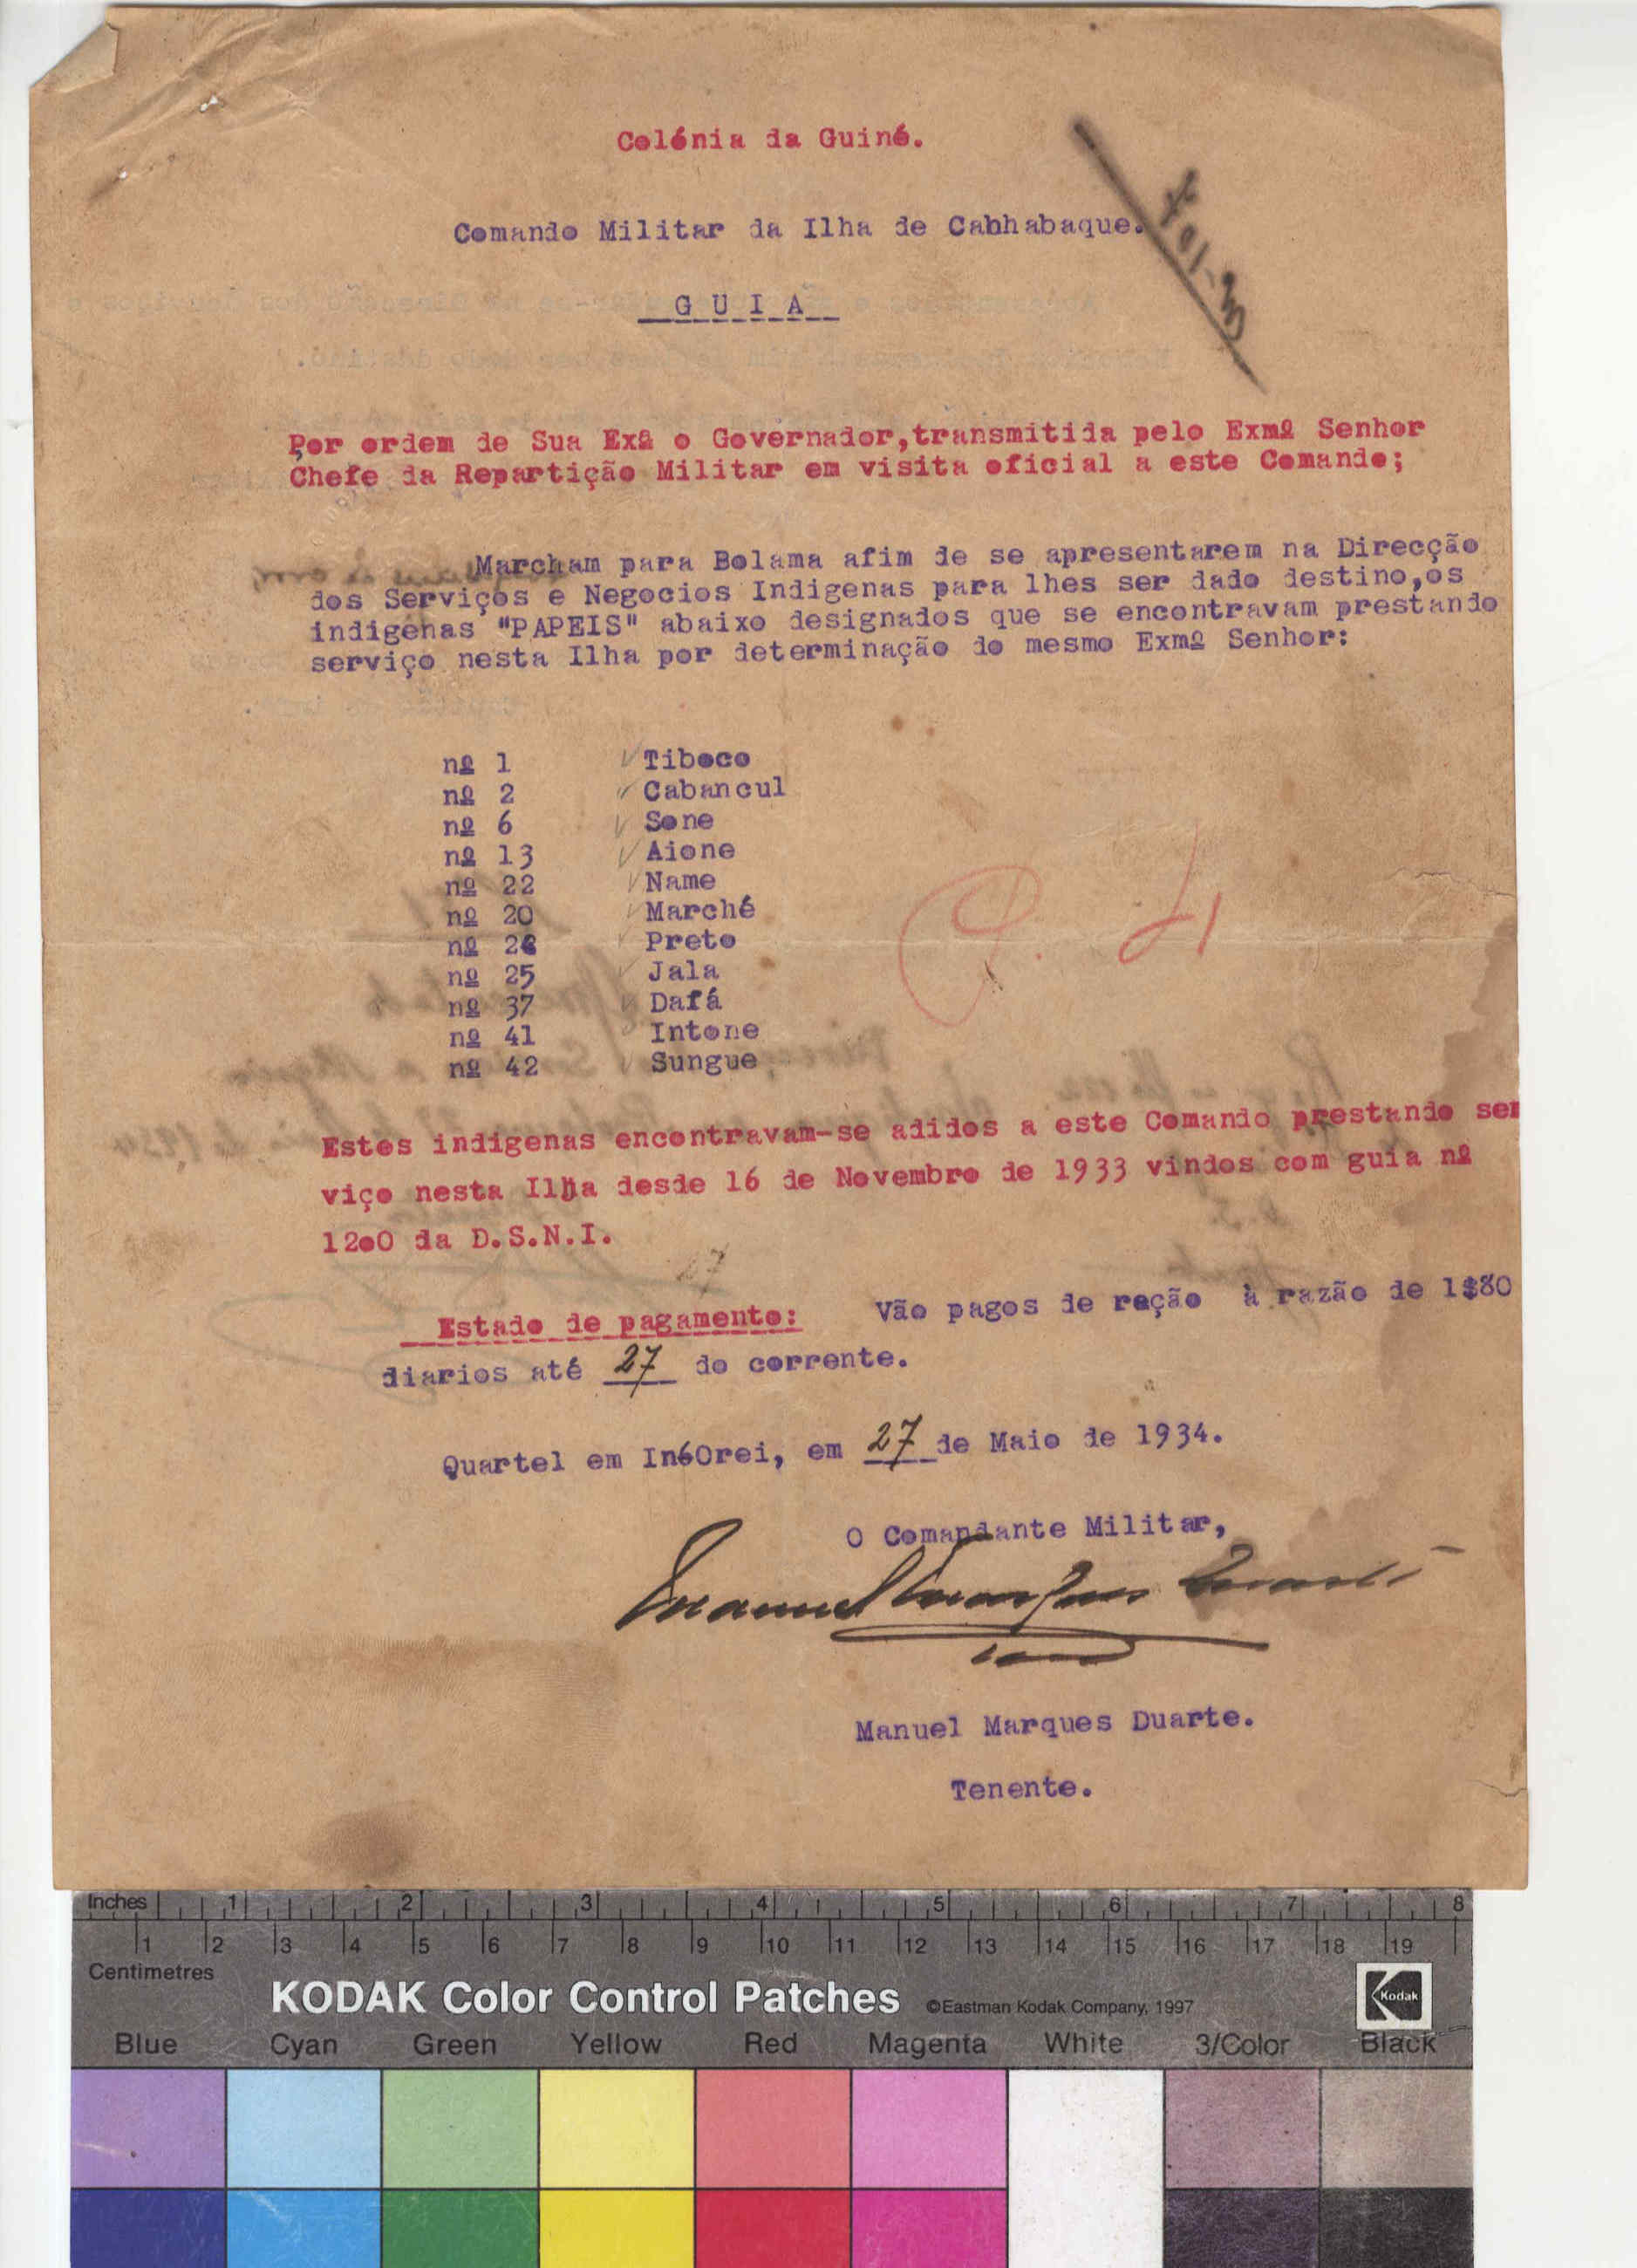 Colónia da Guiné.
Comando Militar da Ilha de Canhabaque.
G U I A
Por ordem de Sua Exª o Governador,transmitida pelo Exmº Senhor
Chefe da Repartição Militar em visita oficial a este Comando;
Marcham para Bolama afim de se apresentarem na Direcção
dos Serviços e Negocios Indigenas para lhes ser dado destino,os
indigenas "PAPEIS" abaixo designados que se encontravam prestando
serviço nesta Ilha por determinação do mesmo Exmº Senhor:
nº 1 Tiboco
nº 2 Cabancul
nº 6 Sone
nº 13 Aione
nº 22 Name
nº 20 Marché
nº Preto
nº 25 Jala
nº 37 Dafá
nº 41 Intone
nº 42 Sungue
Estes indigenas encontravam-se adidos a este Comando prestando ser
viço nesta Ilha desde 16 de Novembro de 1933 vindos com guia nº
12o0 da D.S.N.I.
27
Estado de pagamento: Vão pagos de ração à razão de 1$80
diarios até 27 do corrente.
Quartel em InóOrei, em 27 de Maio de 1934.
O Comandante Militar,
Manuel Marques Duarte
Manuel Marques Duarte.
Tenente.
Inches 1 2 3 4 5 6 7 8
1 2 3 4 5 6 7 8 9 10 11 12 13 14 15 16 17 18 19
Centimetres
KODAK Color Control Patches ©Eastman Kodak Company, 1997 Kodak
Blue Cyan Green Yellow Red Magenta White 3/Color Black